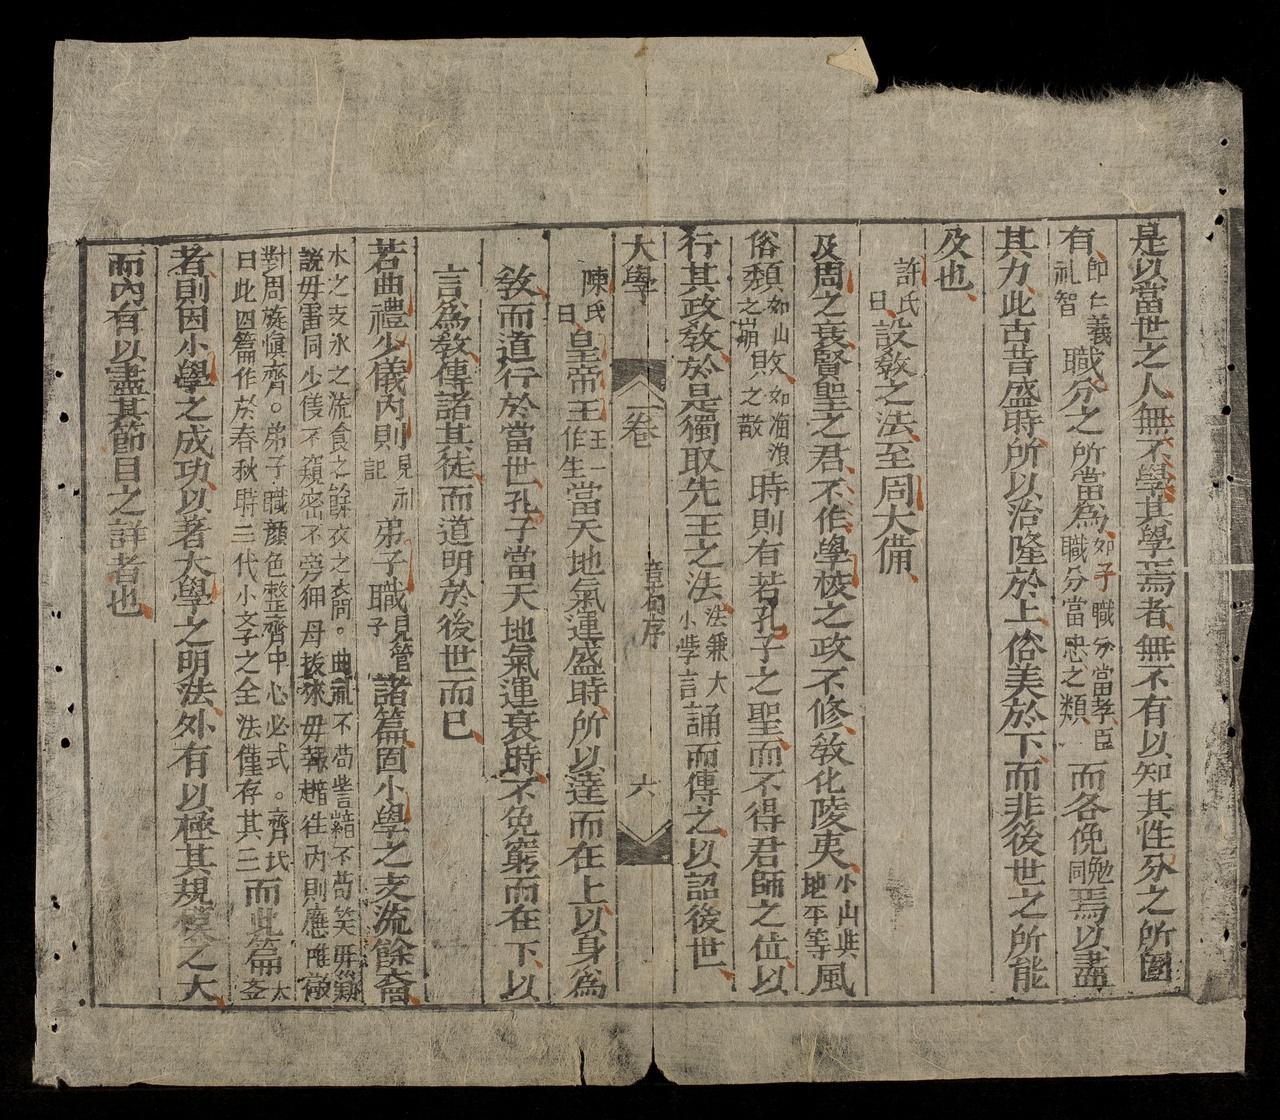 是以當世之人無不學其學焉者無不有以知其性分之所固
有即仁義礼智職分之所當爲如子職分當孝臣職分當忠之類而各俛勉同焉以盡
其力此古昔盛時所以治隆於上俗美於下而非後世之所能
及也
許氏曰設敎之法至周大備
及周之衰賢聖之君不作學校之政不修敎化陵夷小山與地平等風
俗類如山之崩敗如海浪之散時則有若孔子之聖而不得君師之位以
行其政敎於是獨取先王之法法兼大小學言誦而傳之以詔後世
大學 一卷 章句序 六
陳氏曰皇帝王王一作生當天地氣運盛時所以達而在上以身爲
敎而道行於當世孔子當天地氣運衰時不免窮而在下以
言爲敎傳諸其徒而道明於後世而已
若曲禮少儀內則見礼記弟子職見管子諸篇固小學之支流餘裔
水之支氷之流食之餘衣之裔。曲礼不苟訾不苟笑毋
說毋雷同少儀不窺密不旁狎毋拔來毋報徃內則應唯
對周旋愼齊。弟子職顔色整齊中心必式。齊氏曰此四篇作於春秋時三代小文子之全法僅存其三而此篇
者則因小學之成功以著大學之明法外有以極其規模之大
而內有以盡其節目之詳者也